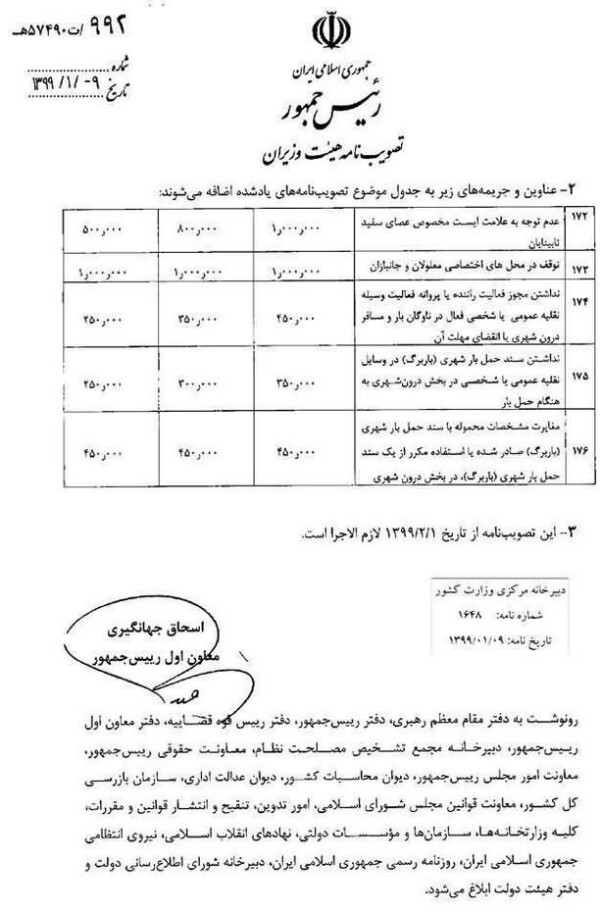 ۹۹۲/ت۵۷۴۹۰هـ
شماره
تاریخ ۱۳۹۹/۱/۰۹
جمهوری اسلامی ایران
رئیس جمهور
تصویب نامه هیئت وزیران
۲- عناوین و جریمه‌های زیر به جدول موضوع تصویب‌نامه‌های یادشده اضافه می‌شوند:
۱۷۲ عدم توجه به علامت ایست مخصوص عصای سفید ۱٫۰۰۰٫۰۰۰ ۸۰۰٫۰۰۰ ۵۰۰٫۰۰۰
نابینایان
۱۷۳ توقف در محل های اختصاصی معلولان و جانبازان ۱٫۰۰۰٫۰۰۰ ۱٫۰۰۰٫۰۰۰ ۱٫۰۰۰٫۰۰۰
نداشتن مجوز فعالیت راننده یا پروانه فعالیت وسیله
۱۷۴ نقلیه عمومی یا شخصی فعال در ناوگان بار و مسافر ۴۵۰٫۰۰۰ ۳۵۰٫۰۰۰ ۲۵۰٫۰۰۰
درون شهری یا انقضای مهلت آن
نداشتن سند حمل بار شهری (باربرگ) در وسایل
۱۷۵ نقلیه عمومی یا شخصی در بخش درون‌شهری به ۳۵۰٫۰۰۰ ۳۰۰٫۰۰۰ ۲۵۰٫۰۰۰
هنگام حمل بار
مغایرت مشخصات محموله با سند حمل بار شهری
۱۷۶ (باربرگ) صادر شده یا استفاده مکرر از یک سند ۴۵۰٫۰۰۰ ۴۵۰٫۰۰۰ ۴۵۰٫۰۰۰
حمل بار شهری (باربرگ)، در بخش درون شهری
۳- این تصویب‌نامه از تاریخ ۱۳۹۹/۲/۱ لازم الاجرا است.
دبیرخانه مرکزی وزارت کشور
شماره نامه: ۱۶۴۸
تاریخ نامه: ۱۳۹۹/۰۱/۰۹
اسحاق جهانگیری
معاون اول رییس‌جمهور
رونوشت به دفتر مقام معظم رهبری، دفتر رییس‌جمهور، دفتر رییس قوه قضاییه، دفتر معاون اول
رییس‌جمهور، دبیرخانه مجمع تشخیص مصلحت نظام، معاونت حقوقی رییس‌جمهور،
معاونت امور مجلس رییس‌جمهور، دیوان محاسبات کشور، دیوان عدالت اداری، سازمان بازرسی
کل کشور، معاونت قوانین مجلس شورای اسلامی، امور تدوین، تنقیح و انتشار قوانین و مقررات،
کلیه وزارتخانه‌ها، سازمان‌ها و مؤسسات دولتی، نهادهای انقلاب اسلامی، نیروی انتظامی
جمهوری اسلامی ایران، روزنامه رسمی جمهوری اسلامی ایران، دبیرخانه شورای اطلاع‌رسانی دولت و
دفتر هیئت دولت ابلاغ می‌شود.